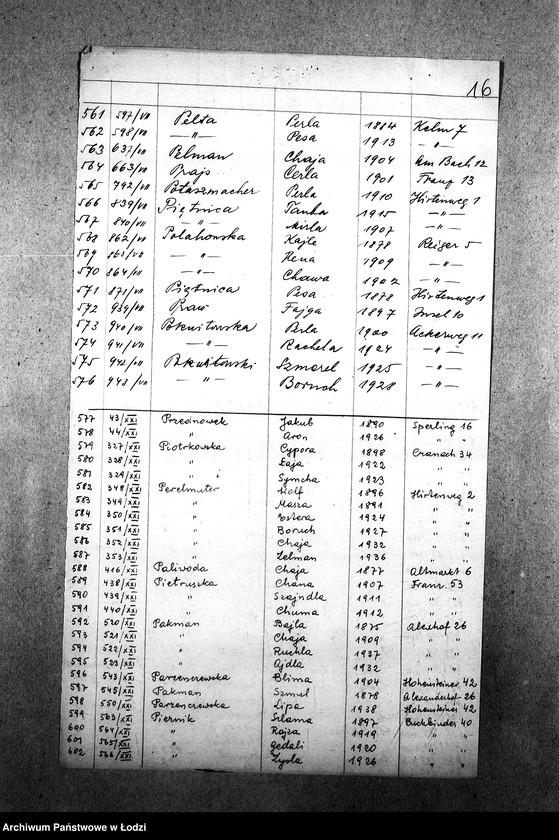 16
561 597/VII Pelta Perla 1884 Kelm 7
562 598/VII —"— Pesa 1913 —"—
563 637/VII Pelman Chaja 1904 Am Bach 12
564 663/VII Prajs Cerla 1901 Franz 13
565 792/VII Potaszmacher Perla 1910 Hirtenweg 1
566 839/VII Piętnica Tauba 1915 —"—
567 840/VII —"— Mirla 1907 —"—
568 862/VII Polakowska Kajla 1878 Reiger 5
569 863/VII —"— Hena 1909 —"—
570 864/VII —"— Chawa 1902 —"—
571 871/VII Piętnica Pesa 1878 Hirtenweg 1
572 939/VII Praw Fajga 1897 Insel 10
573 940/VII Pokwitowska Perla 1900 Ackerweg 11
574 941/VII —"— Rachela 1924 —"—
575 942/VII Pokwitowski Szmorel 1925 —"—
576 943/VII —"— Boruch 1928 —"—
577 43/XXI Przednowek Jakub 1890 Sperling 16
578 44/XXI " Aron 1926 " "
579 327/XXI Piotrkowska Cypora 1898 Cranach 34
580 328/XXI " Łaja 1922 " "
581 329/XXI " Symcha 1923 " "
582 348/XXI Perelmuter Wolf 1896 Hirtenweg 2
583 349/XXI " Masza 1891 " "
584 350/XXI " Estera 1924 " "
585 351/XXI " Boruch 1927 " "
586 352/XXI " Chaja 1932 " "
587 353/XXI " Zelman 1936 " "
588 416/XXI Paliwoda Chaja 1877 Altmarkt 6
589 438/XXI Pietruszka Chana 1907 Franz. 53
590 439/XXI " Szajndla 1911 " "
591 440/XXI " Chuma 1912 " "
592 520/XXI Pakman Bajla 1875 Alexhof 26
593 521/XXI " Chaja 1909 " "
594 522/XXI " Ruchla 1937 " "
595 523/XXI " Ajdla 1932 " "
596 543/XXI Parzenczewska Blima 1904 Hohensteiner 42
597 545/XXI Pakman Szmul 1878 Alexanderhof 26
598 550/XXI Parzenczewska Lipa 1938 Hohensteiner 42
599 563/XXI Piernik Szlama 1897 Buchbinder 40
600 564/XXI " Rojza 1919 " "
601 565/XXI " Gedali 1920 " "
602 566/XXI " Zysla 1926 " "
Archiwum Państwowe w Łodzi